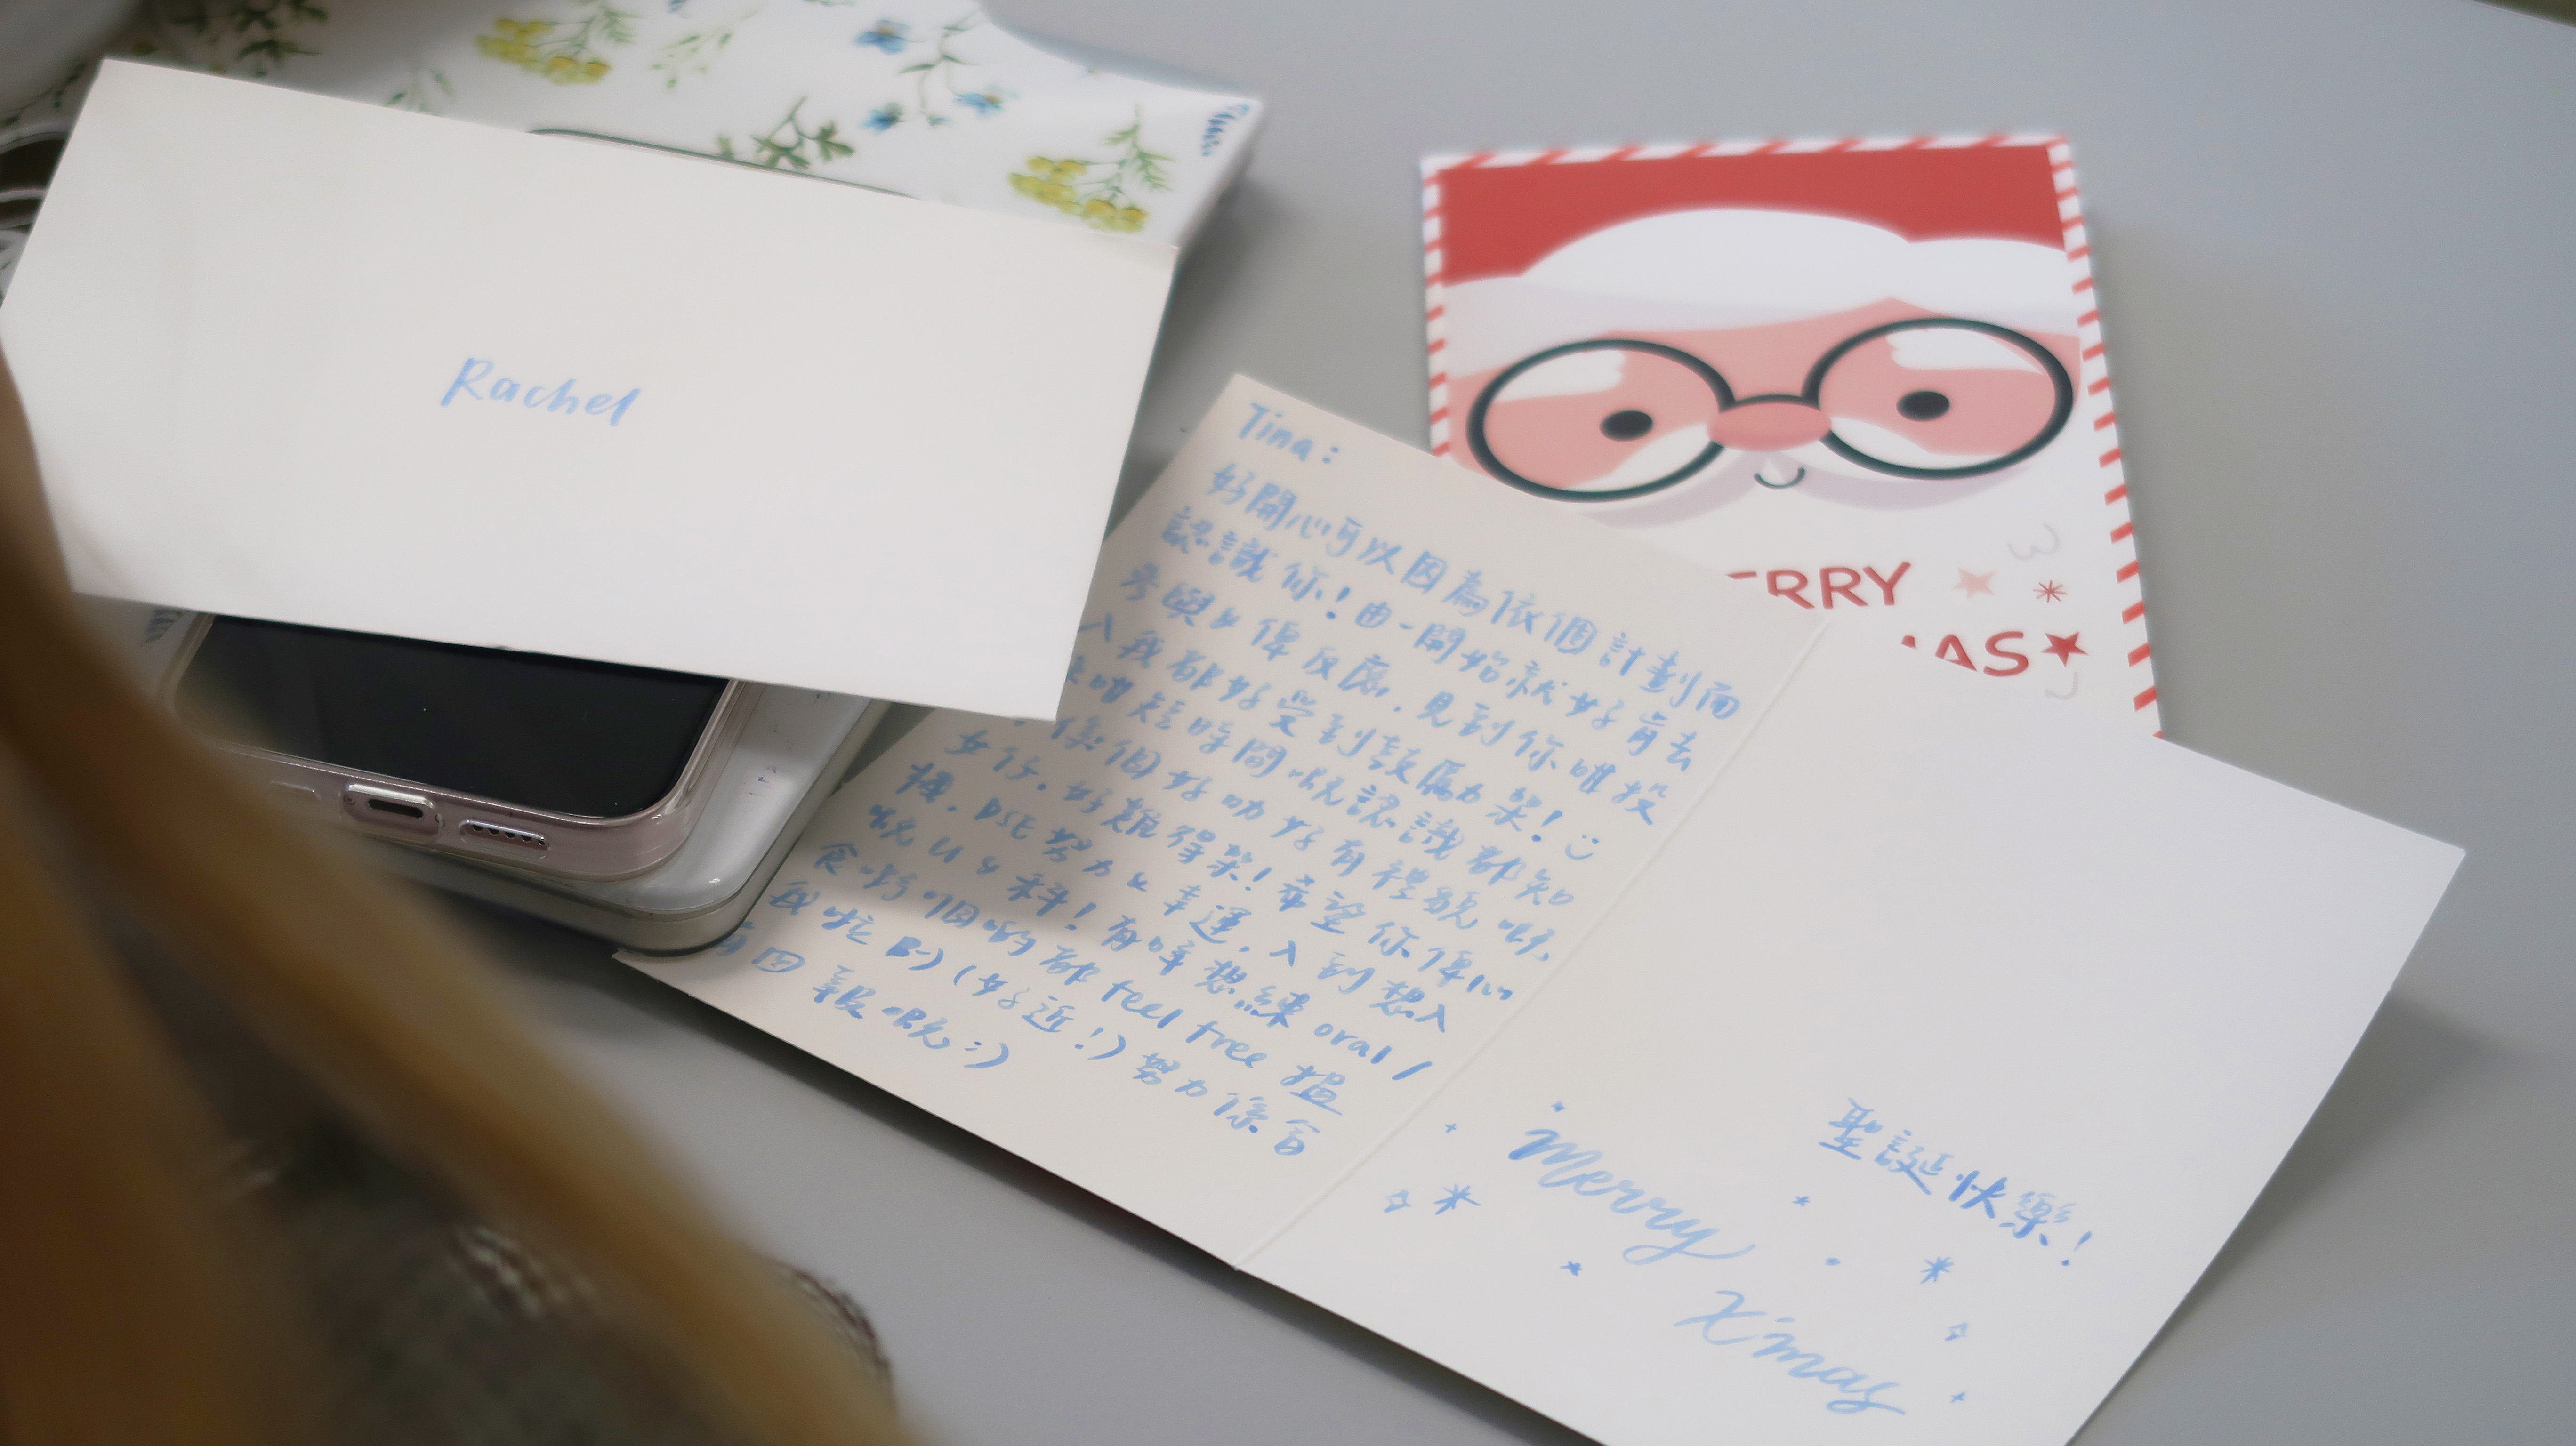 Rachel
Tina:
好開心可以因為依個計劃而
認識你!由一開始就好肯去
參與同俾反應,見到你咁投
入我都好受到鼓勵架!:)
咁短時間 認識都知
係個好叻好有禮貌
女仔,好難得架!希望你俾心
機,DSE努力&幸運,入到想入
嘅U&科!有咩想練oral/
食 個啲都feel free搵
我 B-)(好近!)努力係會
有回報嘅:)
聖誕快樂!
Merry
X'mas
ERRY
MAS